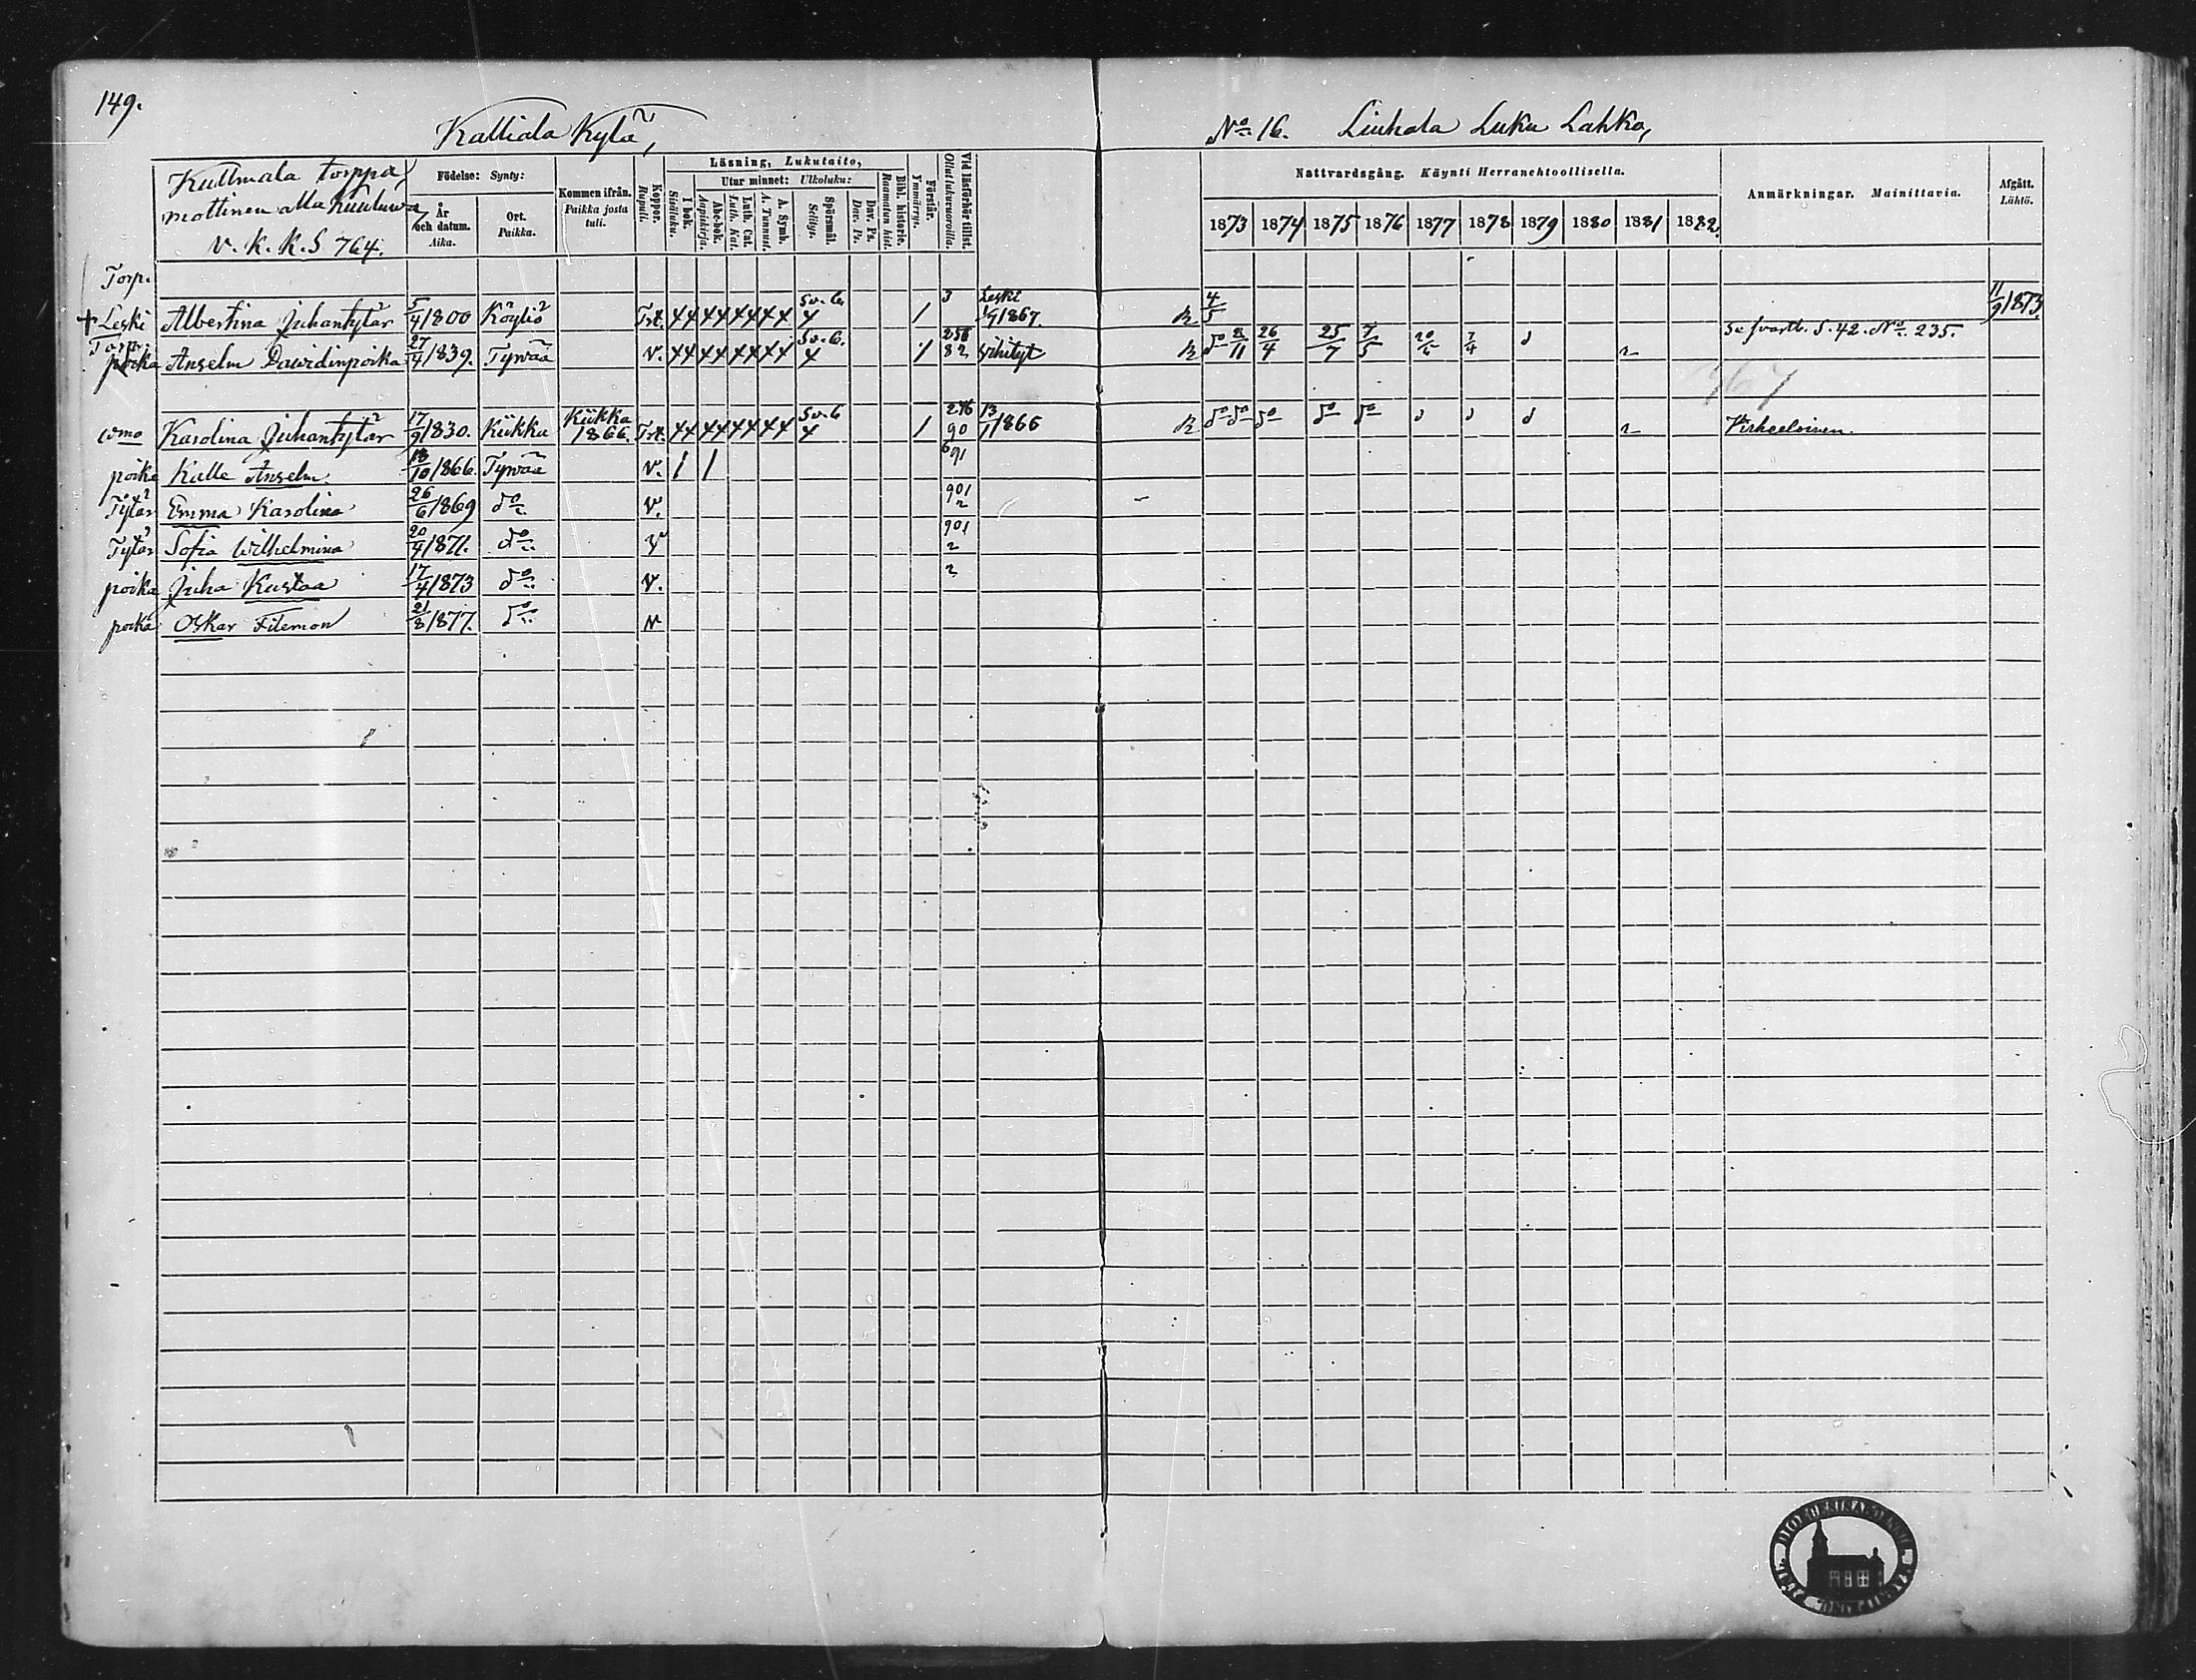 149.
Kalliala Kylä,
No 16. Liuhala Luku Lahko,
Kullmala torppa
mottinen alla kuuluwa
V. K. K. S 764.
Födelse: Synty:
År och datum. Aika.
Ort. Paikka.
Kommen ifrån. Paikka josta tuli.
Koppor. Rupuli.
Läsning, Lukutaito,
I bok. Sisäluku.
Utur minnet: Ulkoluku:
Abc-bok. Aapiskirja.
Luth. Cat. Luth. Kat.
A. Symb. A. Tunnust.
Spörsmål. Selitys.
Dav. Ps. Dav. Ps.
Bibl. historie. Raamatun hist.
Förstår. Ymmärrys.
Vid läsförhör tillst. Ollut lukuvuoroilla.
Nattvardsgång. Käynti Herranehtoollisella.
1873 1874 1875 1876 1877 1878 1879 1880 1881 1882.
Anmärkningar. Mainittavia.
Afgått. Lähtö.
Torp.
+ Leski Albertina Juhantytär 5/4 1800 Köyliö T.st. Sv. 3 Leski 1867. R 4/5 11/9 1873
Torp. poika Anselm Dawidinpoika 27/4 1839. Tyrwää v. Sv. 6. 82 wihityt R do 2/11 26/4 25/7 7/5 20/5 7/4 S. 42. No 235.
767
wmo Karolina Juhantytär 17/9 1830. Kiikka Kiikka 1866 T.st. Sv. 6 276 90 13/1 1866 R do do do do do
poika Kalle Anselm 18/10 1866. Tyrwää v. 91
Tytär Emma Karolina 26/6 1869 do v. 901 2
Tytär Sofia Wilhelmina 20/4 1871. do v 901 2
poika Juha Kustaa 17/4 1873 do v. 2
poika Oskar Filemon 21/8 1877. do v